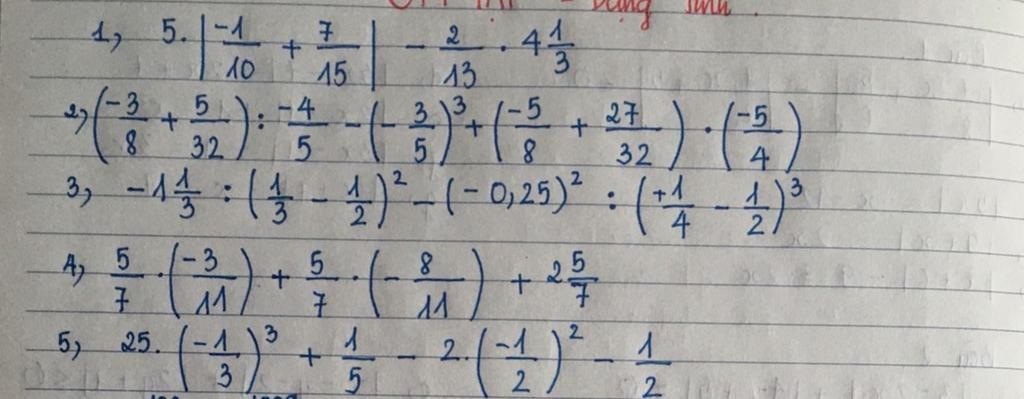 1, 5. |-1/10 + 7/15| - 2/13 . 4 1/3
2, (-3/8 + 5/32) : -4/5 - (-3/5)³ + (-5/8 + 27/32) . (-5/4)
3, -1 1/3 : (1/3 - 1/2)² - (-0,25)² : (+1/4 - 1/2)³
4, 5/7 . (-3/11) + 5/7 . (-8/11) + 2 5/7
5, 25. (-1/3)³ + 1/5 - 2. (-1/2)² - 1/2